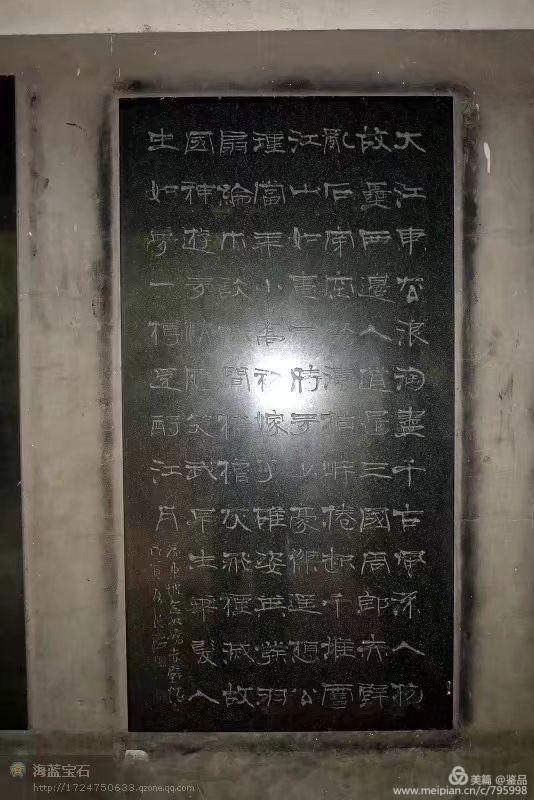 大江東去浪淘盡千古風流人物
故壘西邊人道是三國周郎赤壁
亂石穿空濤拍岸捲起千堆雪
江山如畫一時多少豪傑遙想公
瑾當年小喬初嫁了雄姿英發羽
扇綸巾談笑間檣櫓灰飛煙滅故
國神遊多情應笑我早生華髮人
生如夢一樽還酹江月
蘇東坡念奴嬌赤壁懷古
戊寅
海蓝宝石
http://1724750633.qzone.qq.com
美篇 @鉴品
www.meipian.cn/c/795998